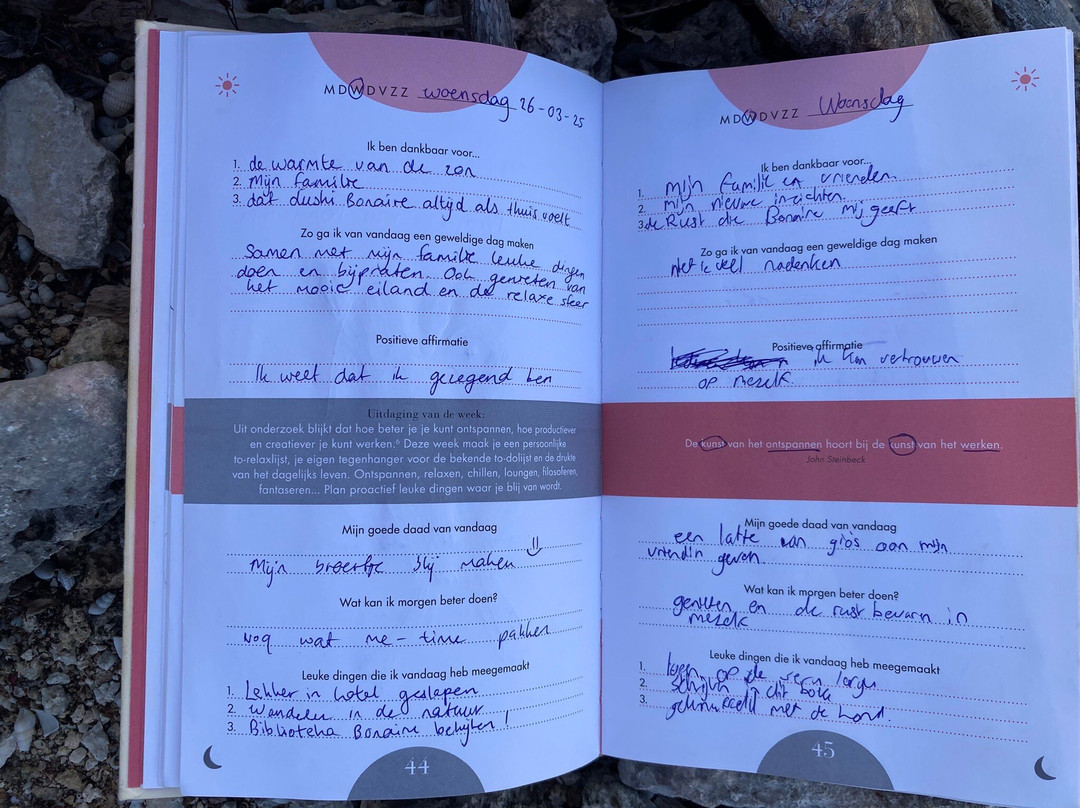 MDWDVZZ woensdag 26-03-25
Ik ben dankbaar voor...
1. de warmte van de zon
2. Mijn familie
3. dat dushi Bonaire altijd als thuis voelt
Zo ga ik van vandaag een geweldige dag maken
Samen met mijn familie leuke dingen
doen en bijpraten. Ook genieten van
het mooie eiland en de relaxe sfeer
Positieve affirmatie
Ik weet dat ik gezegend ben
Uitdaging van de week:
Uit onderzoek blijkt dat hoe beter je je kunt ontspannen, hoe productiever
en creatiever je kunt werken.6 Deze week maak je een persoonlijke
to-relaxlijst, je eigen tegenhanger voor de bekende to-dolijst en de drukte
van het dagelijks leven. Ontspannen, relaxen, chillen, loungen, filosoferen,
fantaseren... Plan proactief leuke dingen waar je blij van wordt.
Mijn goede daad van vandaag
Mijn broertje blij maken
Wat kan ik morgen beter doen?
Nog wat me-time pakken
Leuke dingen die ik vandaag heb meegemaakt
1. Lekker in hotel geslapen
2. Wandelen in de natuur
3. Biblioteka Bonaire bekijken!
44
MDWDVZZ Woensdag
Ik ben dankbaar voor...
1. mijn familie en vrienden.
2. mijn nieuwe inzichten.
3. de Rust die Bonaire mij geeft
Zo ga ik van vandaag een geweldige dag maken
Niet te veel nadenken
Positieve affirmatie
ik kan vertrouwen
op mezelf
De kunst van het ontspannen hoort bij de kunst van het werken.
John Steinbeck
Mijn goede daad van vandaag
een latte van glos aan mijn
vriendin geven
Wat kan ik morgen beter doen?
genieten en de rust bewarn in
mezelf
Leuke dingen die ik vandaag heb meegemaakt
1. op de
2. schrijvn in dit boek
3. geknuffeld met de hond.
45